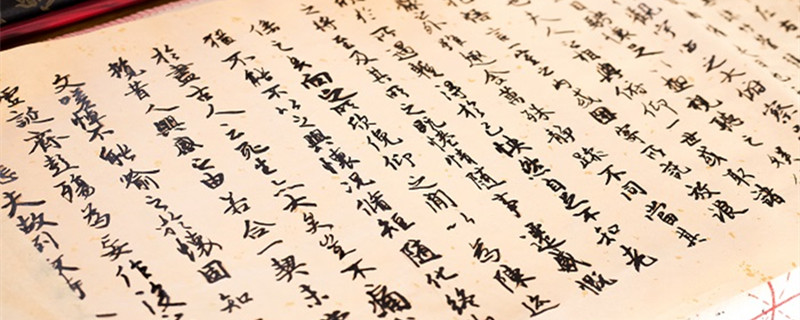 觀宇宙之大俯察
騁懷視聽之娛
大人之相與俯仰一世或取諸
言一室之內或因寄所託放浪
外雖趣舍萬殊靜躁不同當其
於所遇暫得於己快然自足不知老
之將至及其所之既倦情隨事遷感慨
係之矣向之所欣俛仰之間以為陳迹
猶不能不以之興懷況脩短隨化終
於盡古人云死生亦大矣豈不痛
攬昔人興感之由若合一契未
文嗟悼不能喻之於懷固知
虛誕齊彭殤為妄作後
悲夫故列敘時